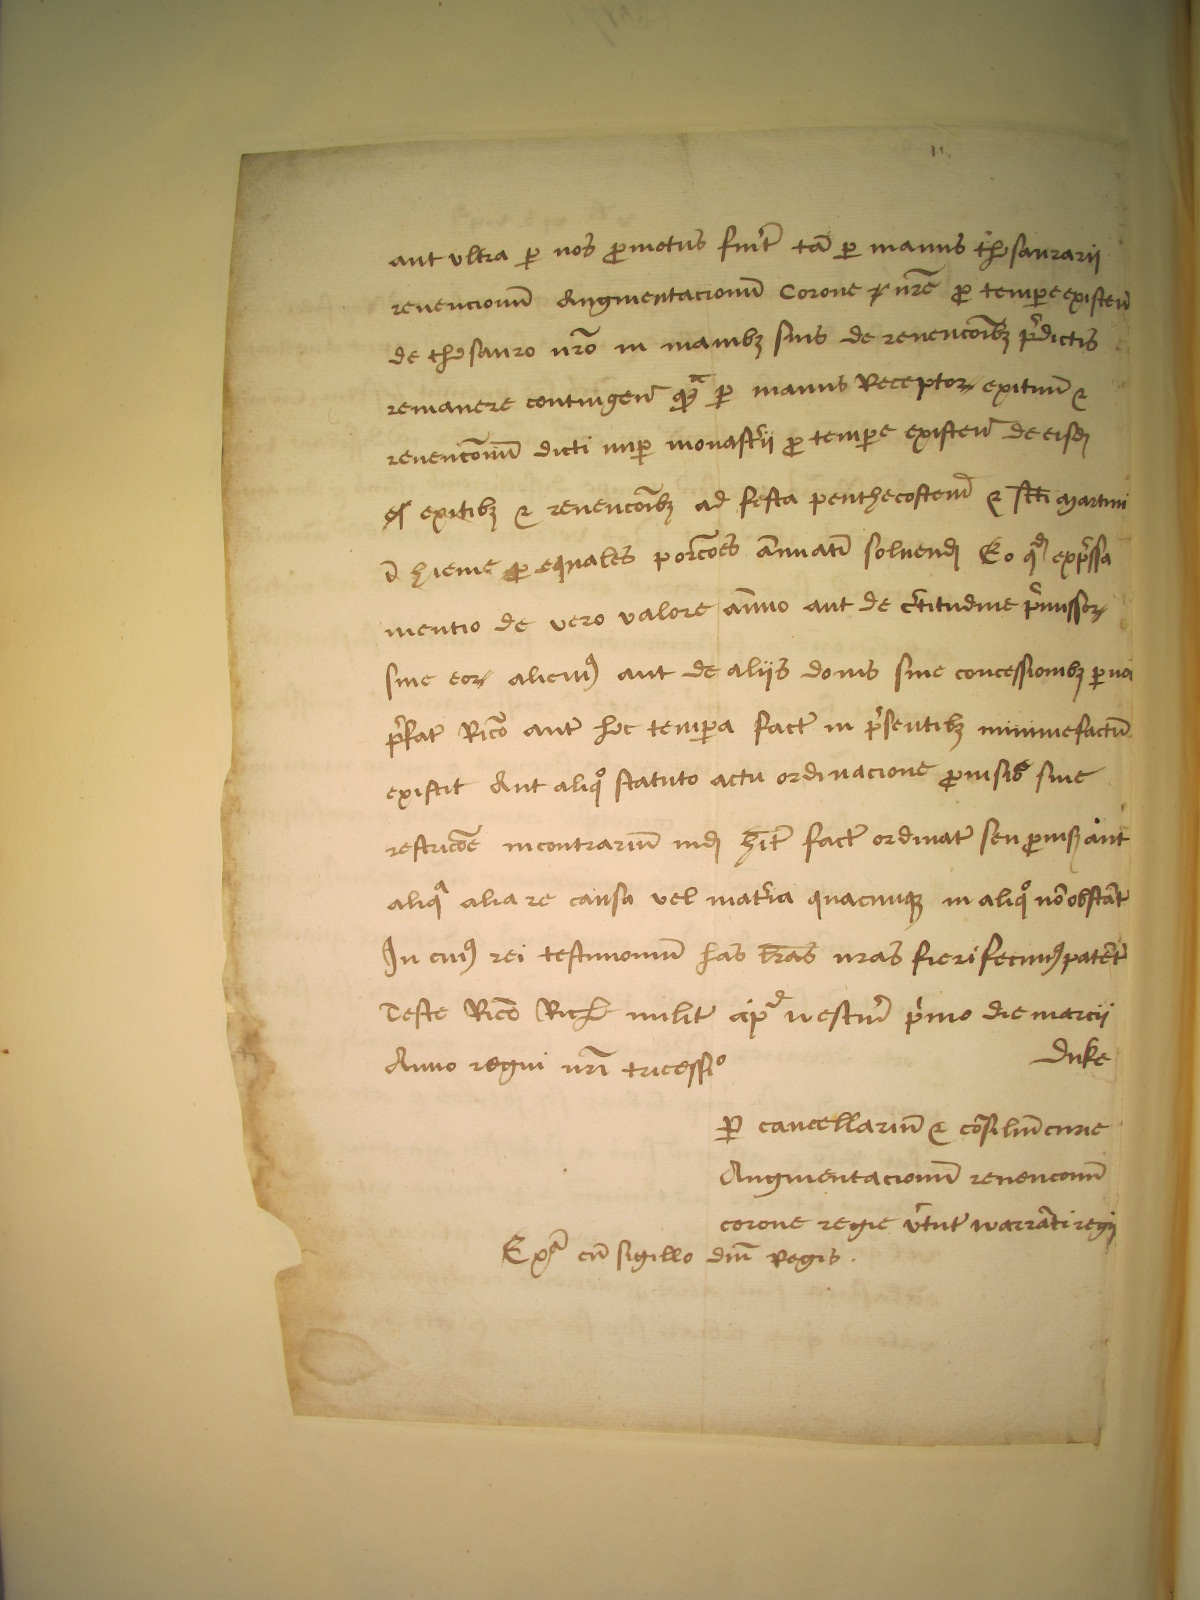 11
aut ultra p nos pmotus fuit tā p manus thesaurarii
revencionū Augmentacionū Corone nrē p tempe existeñ
de thesauro nrō in manibȝ suis de revencōibȝ p̄dictis
remanere contingeñ qa p manus Receptor exituū &
revencōnū dicti nup monastii p tempe existeñ de eisd
exitibȝ & revencōibȝ ad festa penthecosteñ & scti Martini
ī hieme p equales porcōes annuatī solvend Eo qd exp̄ssa
mentio de vero valore annuo aut de ctitudine p̄missor
sive eor alicui9 aut de aliis donis sive concessionibȝ p nos
p̄fat Ricō ante hec tempa fact in p̄sentibȝ minime factū
existit Aut aliqo statuto actu ordinacione pvisione sive
restricōe incontrariū ind hīt fact ordinat seu pvis aut
aliqa alia re causa vel mat̄ia quacunqȝ in aliqo nō obstāt
In cui9 rei testimoniū has lras nras fieri fecim9 patēt
Teste Ricō Rich milite apd westm p̄mo die marcii
Anno regni nrī tricessio
Duke
P cancellariū & cōsiliū curie
Augmentacionū revenconū
corone regie v̄tute warrāti regii
Exa cū sigillo dn̄i Regis.